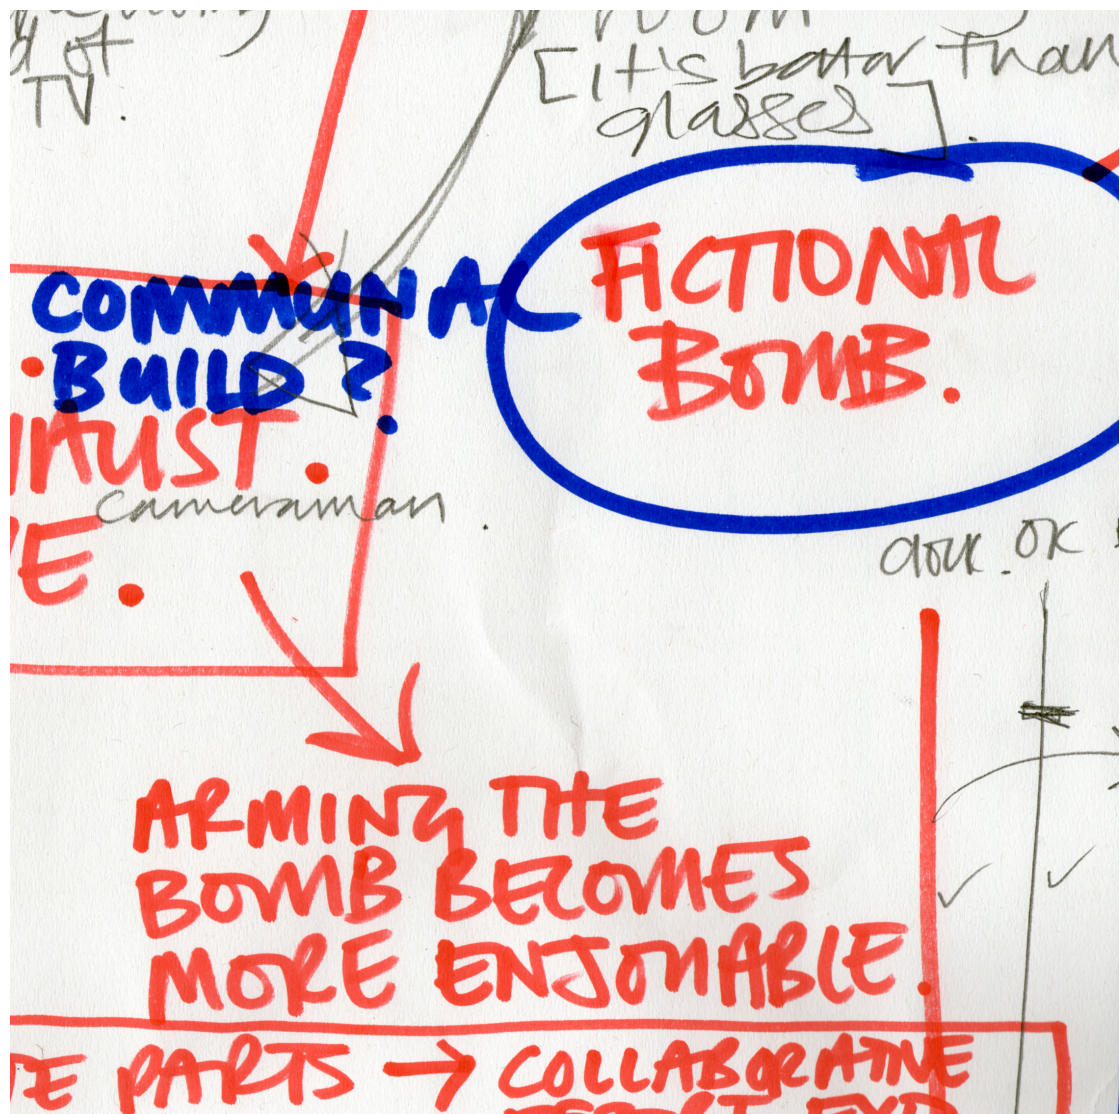 of
TV.
[it's better than
glasses].
COMMUNAL
BUILD?
FICTIONAL
BOMB.
HAUST.
cameraman.
VE.
clock. OK
ARMING THE
BOMB BECOMES
MORE ENJOYABLE.
TE PARTS → COLLABORATIVE